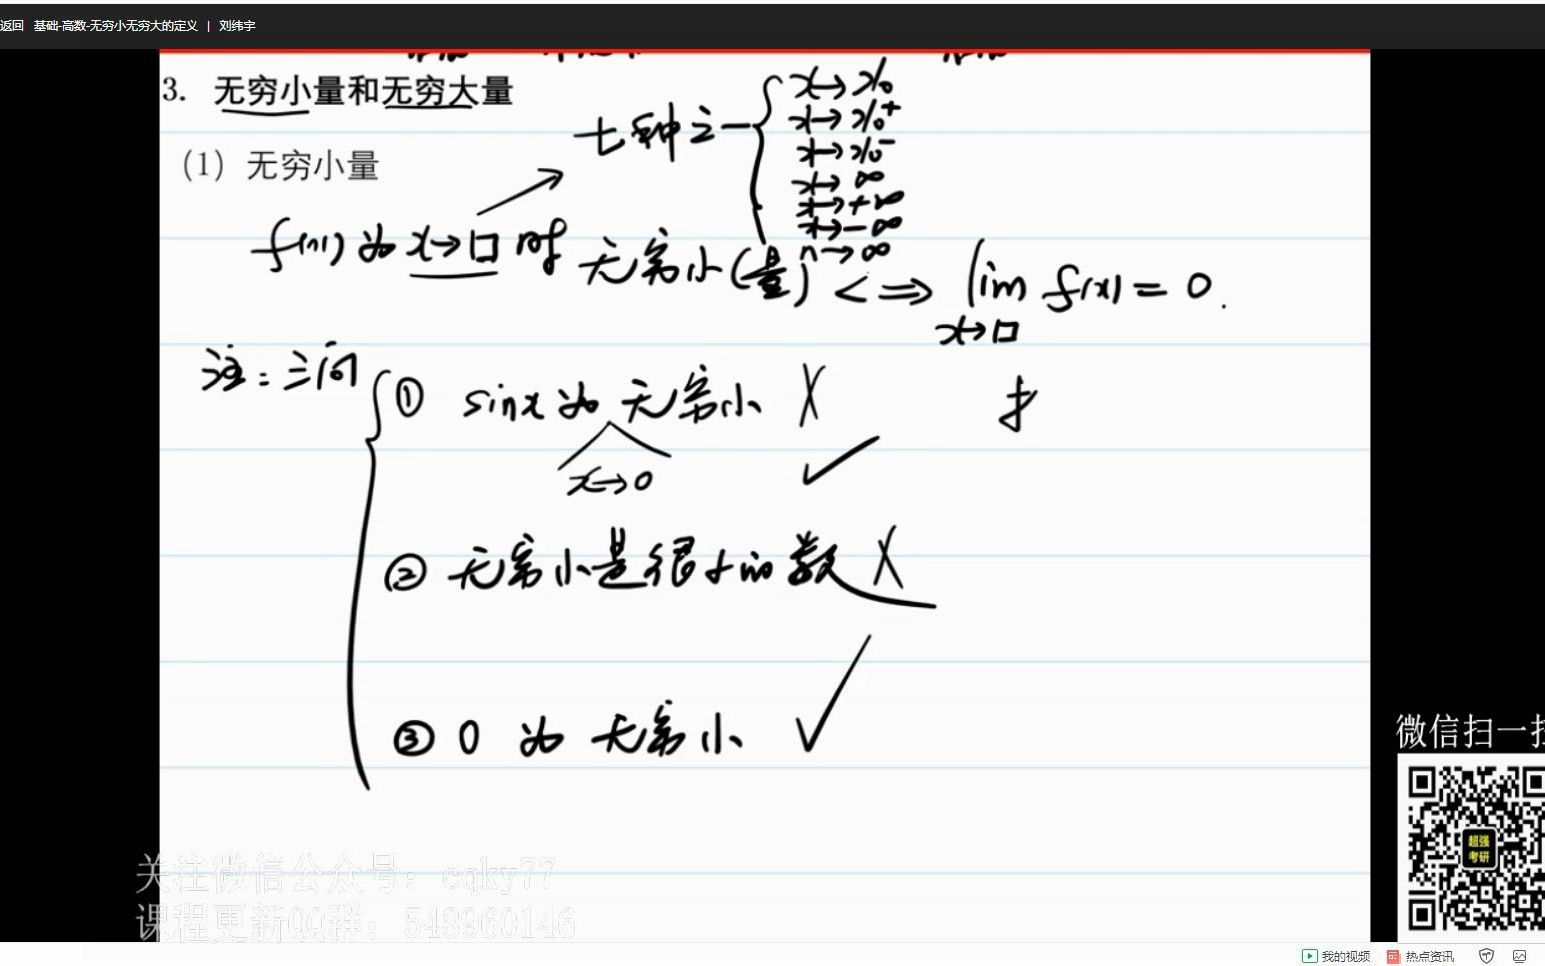 返回 基础-高数-无穷小无穷大的定义 | 刘纬宇
3. 无穷小量和无穷大量
七种之一
x→x₀
x→x₀⁺
x→x₀⁻
x→∞
x→+∞
x→-∞
n→∞
(1) 无穷小量
f(x) 为 x→口 时 无穷小(量) <=> lim f(x) = 0.
x→口
注: 三问
① sinx 为 无穷小 X
x→0 ✓
② 无穷小是很小的数 X
③ 0 为 无穷小 ✓
微信扫一扫
超强
考研
关注微信公众号: cqky77
课程更新QQ群: 548960146
我的视频 热点资讯